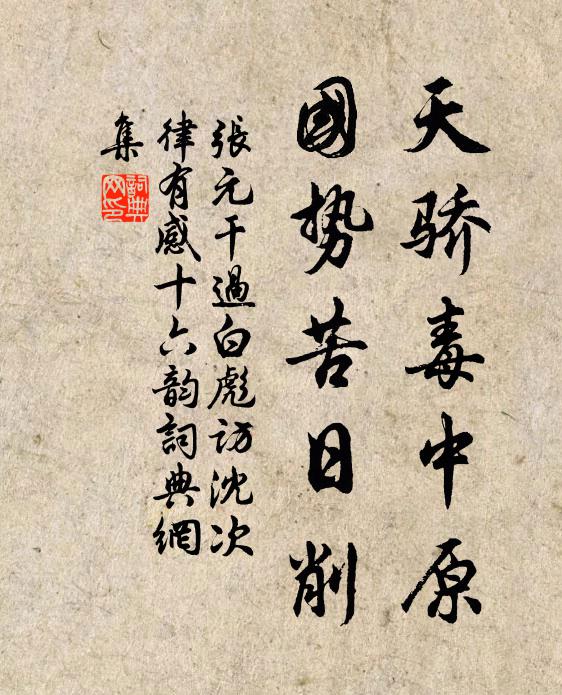 天骄毒中原
國势苦日削
張元干過白彪访沈次
律有感十六韵詞典網
集
詞典网印